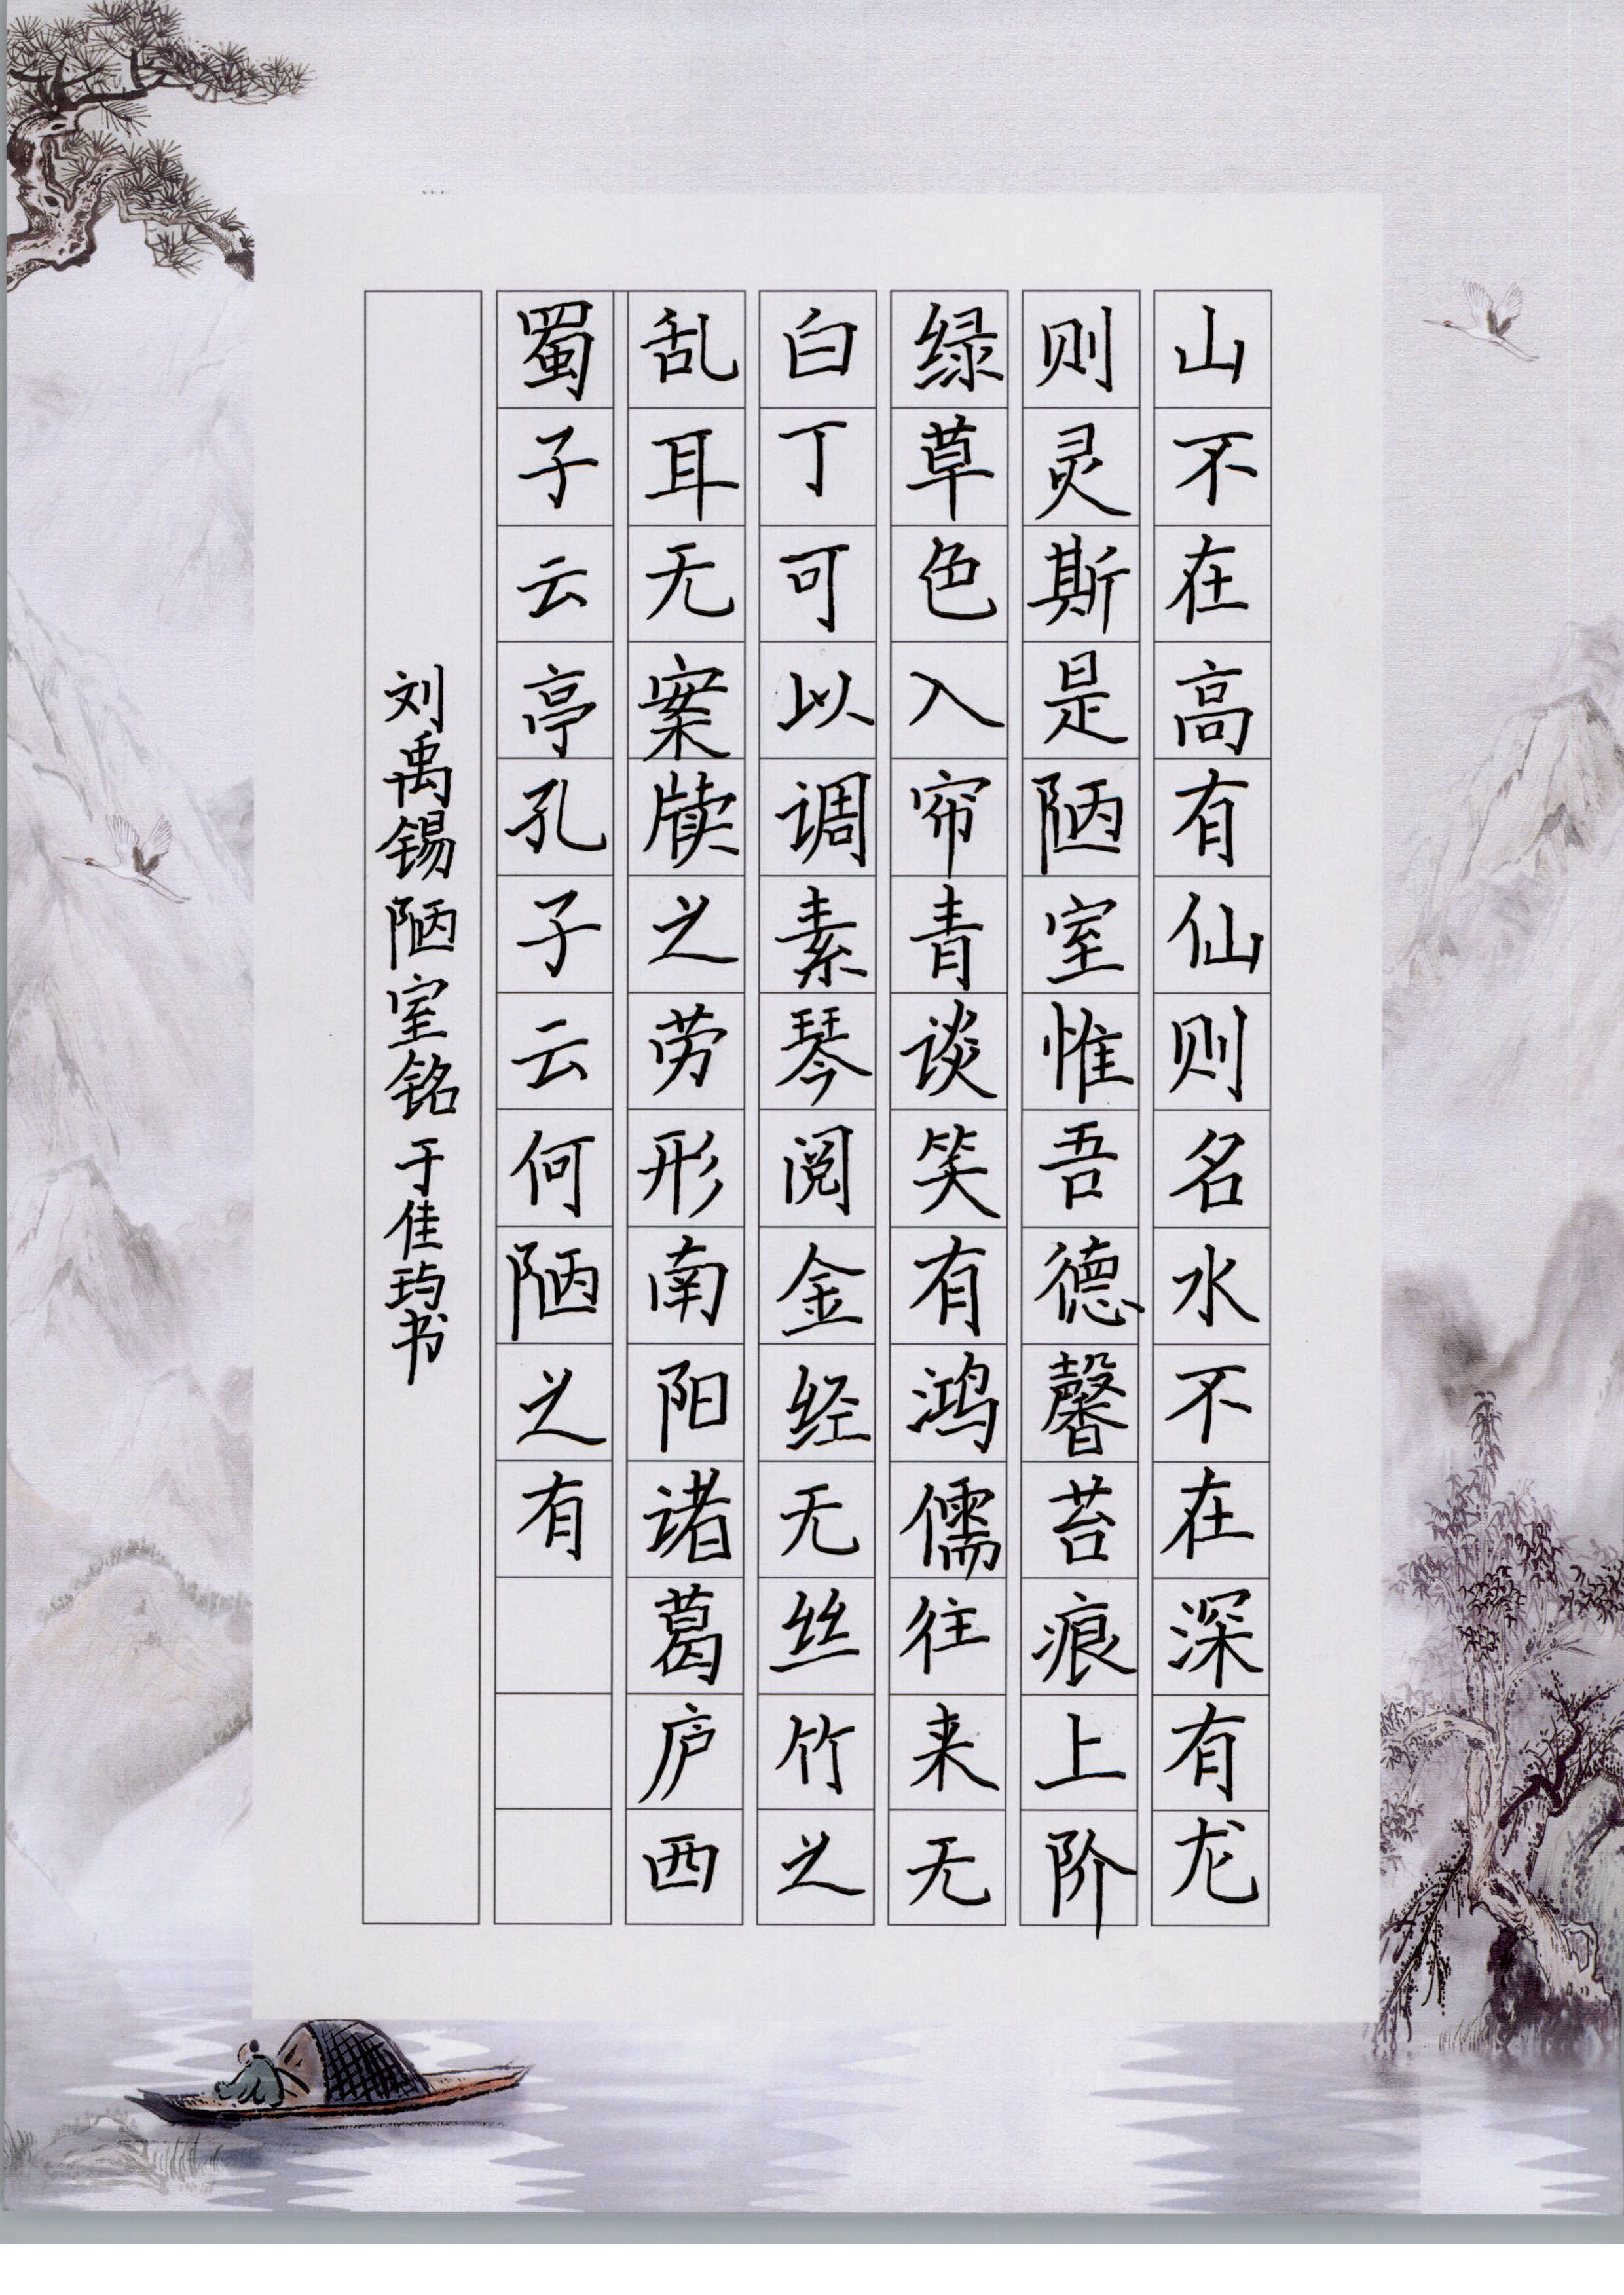 山不在高有仙则名水不在深有龙
则灵斯是陋室惟吾德馨苔痕上阶
绿草色入帘青谈笑有鸿儒往来无
白丁可以调素琴阅金经无丝竹之
乱耳无案牍之劳形南阳诸葛庐西
蜀子云亭孔子云何陋之有
刘禹锡陋室铭于佳玙书